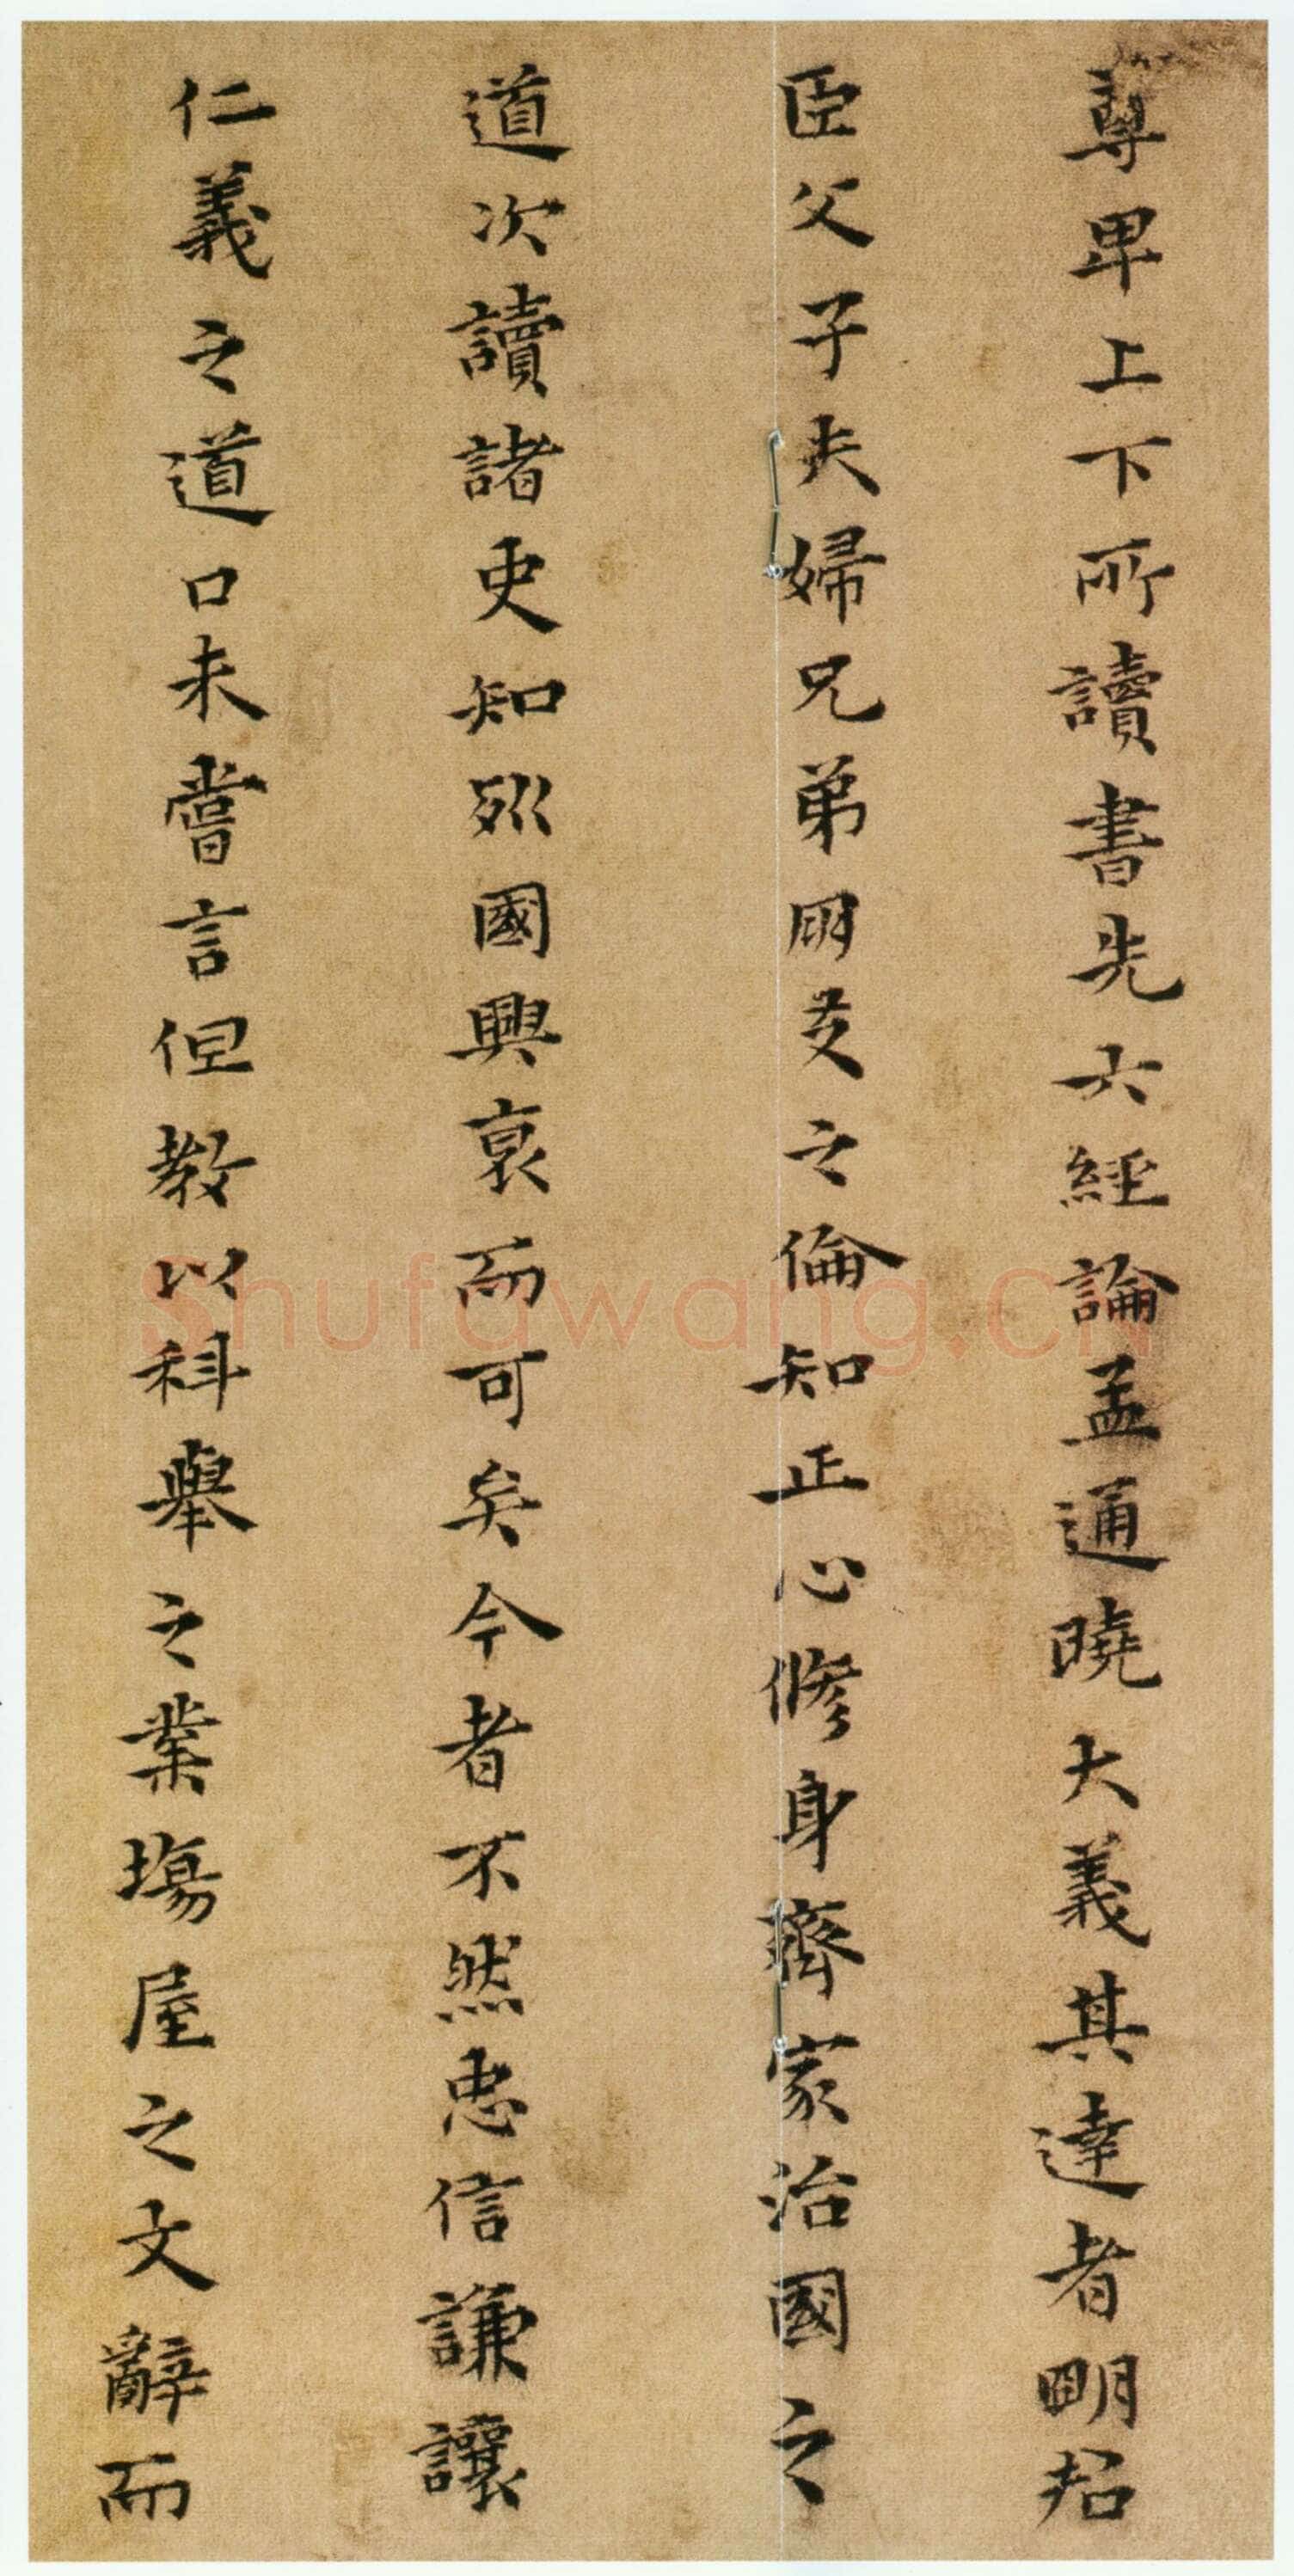 尊卑上下所讀書先六經論孟通曉大義其達者明君
臣父子夫婦兄弟朋友之倫知正心修身齊家治國之
道次讀諸史知列國興衰而可矣今者不然忠信謙讓
仁義之道口未嘗言但教以科舉之業場屋之文辭而
shufawang.cn